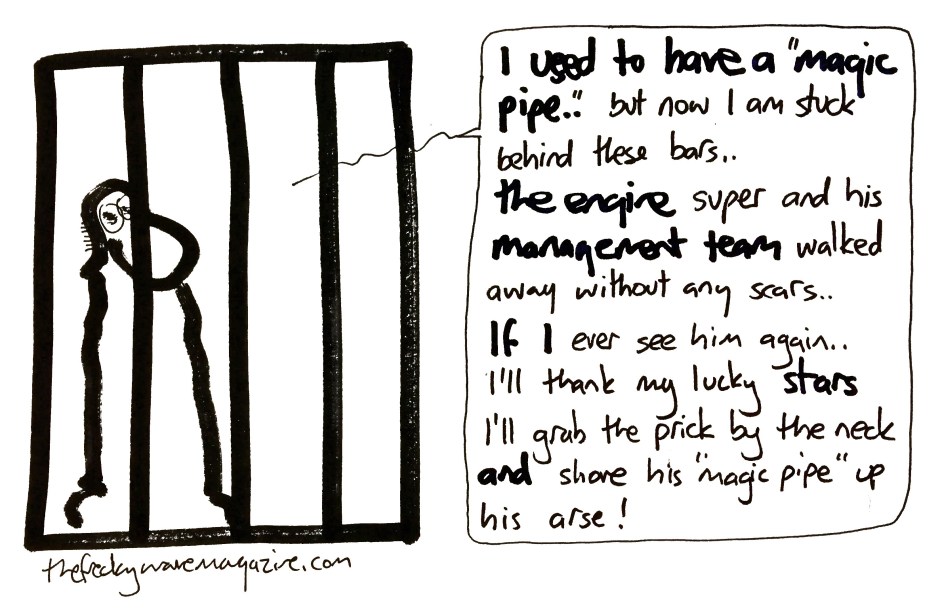 I used to have a "magic
pipe.." but now I am stuck
behind these bars..
the engine super and his
management team walked
away without any scars..
If I ever see him again..
I'll thank my lucky stars
I'll grab the prick by the neck
and shove his "magic pipe" up
his arse!
thefreakywavemagazine.com